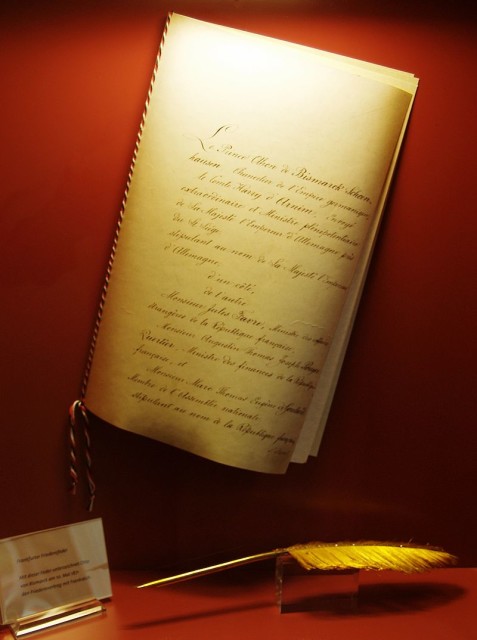 Le Prince Othon de Bismarck-Schoen-
hausen, Chancelier de l'Empire germanique,
le Comte Harry d'Arnim, Envoyé
extraordinaire et Ministre plénipotentiaire
de Sa Majesté l'Empereur d'Allemagne près
du St Siège,
stipulant au nom de Sa Majesté l'Empereur
d'Allemagne,
d'un côté,
de l'autre
Monsieur Jules Favre, Ministre des affaires
étrangères de la République française
Monsieur Augustin Thomas Joseph Pouyer-
Quertier, Ministre des finances de la République
française, et
Monsieur Marc Thomas Eugène de Goulard
Membre de l'Assemblée nationale
stipulant au nom de la République française
Frankfurter Friedensfeder
Mit dieser Feder unterzeichnete
von Bismarck am 10. Mai 1871
den Friedensvertrag mit Frankreich